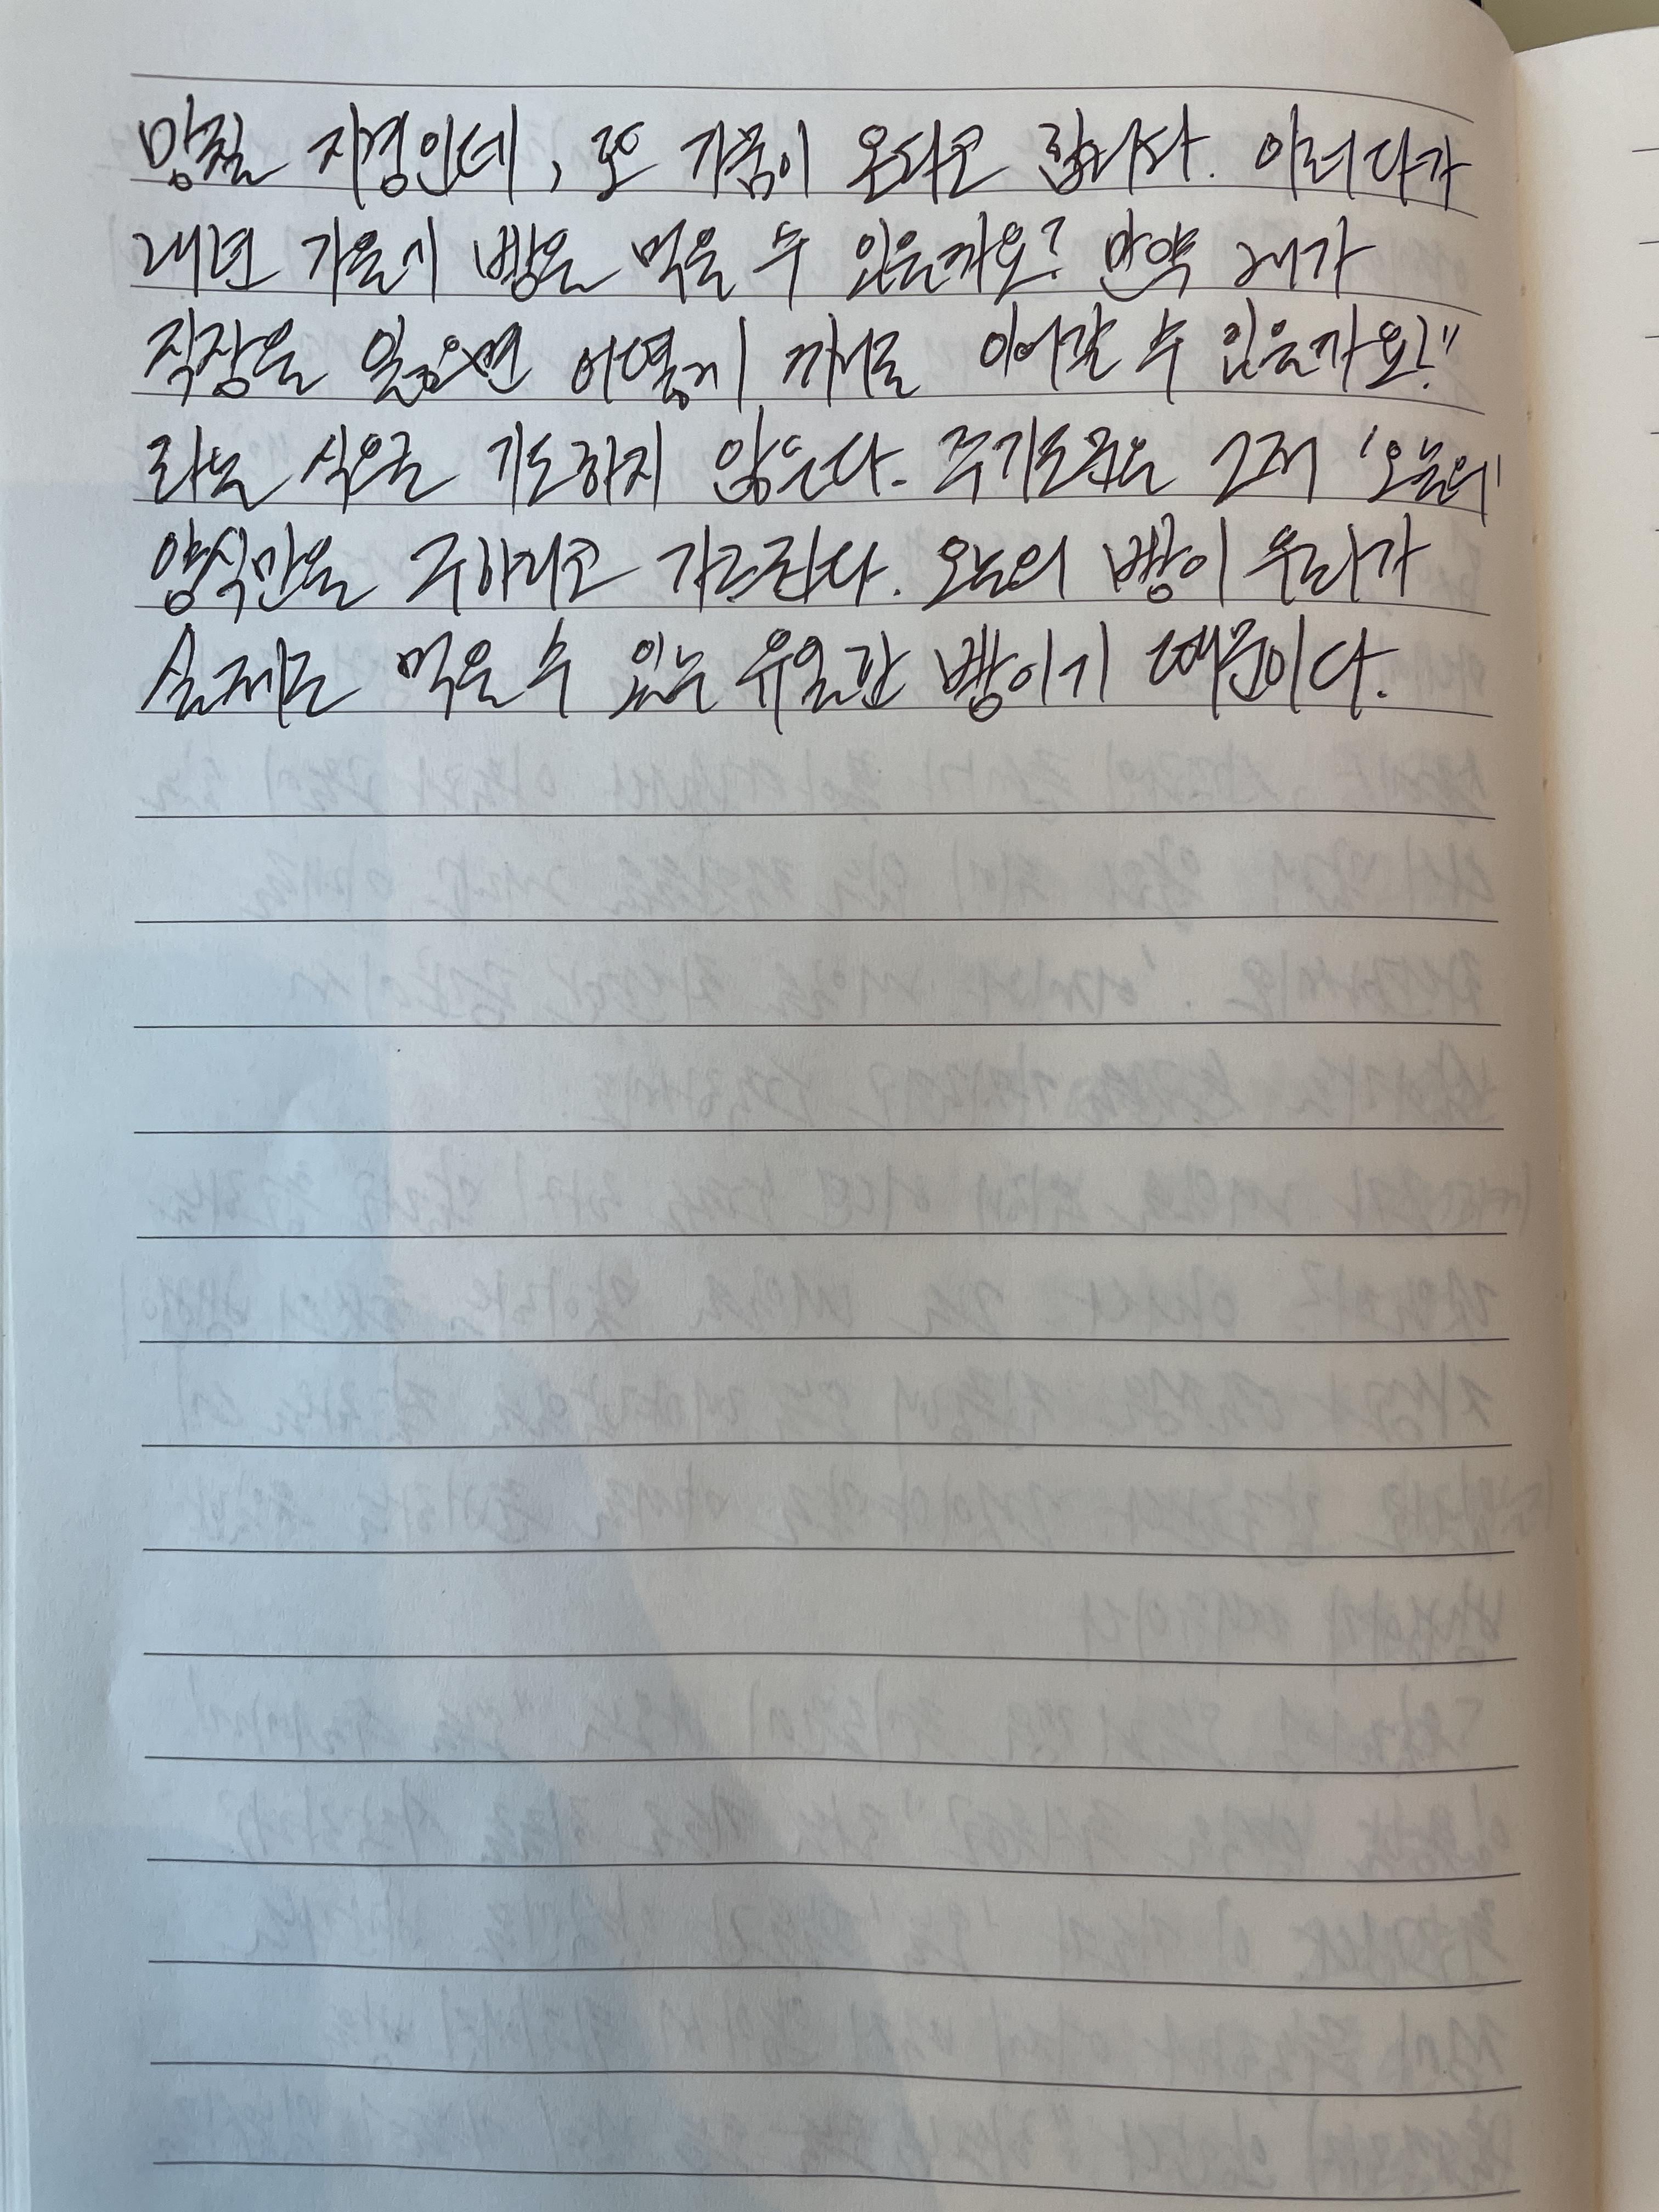 망칠 지경인데, 또 가뭄이 온다고 합니다. 이러다가
내년 가을에 빵을 먹을 수 있을까요? 만약 제가
직장을 잃으면 어떻게 끼니를 이어갈 수 있을까요?"
라는 식으로 기도하지 않는다. 주기도문은 그저 '오늘의'
양식만을 구하라고 가르친다. 오늘의 빵이 우리가
실제로 먹을 수 있는 유일한 빵이기 때문이다.